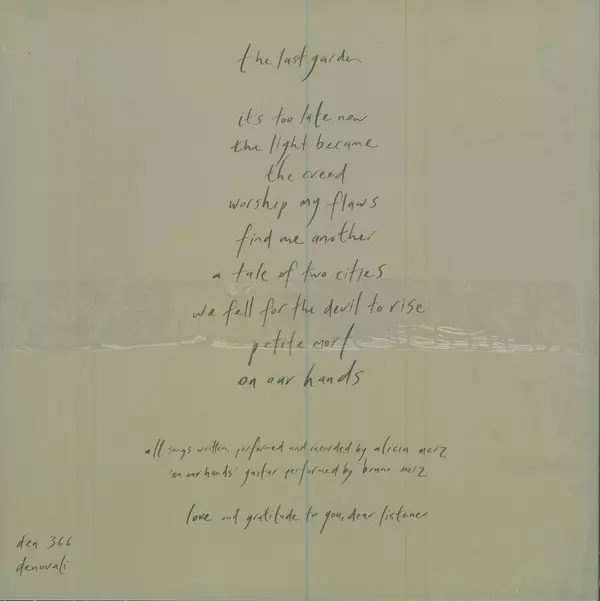 the last garden
it's too late now
the light became
the creed
worship my flaws
find me another
a tale of two cities
we fell for the devil to rise
petite mort
on our hands
all songs written, performed and recorded by alicia merz
'on our hands' guitar performed by bruno merz
love and gratitude to you, dear listener
den 366
denovali